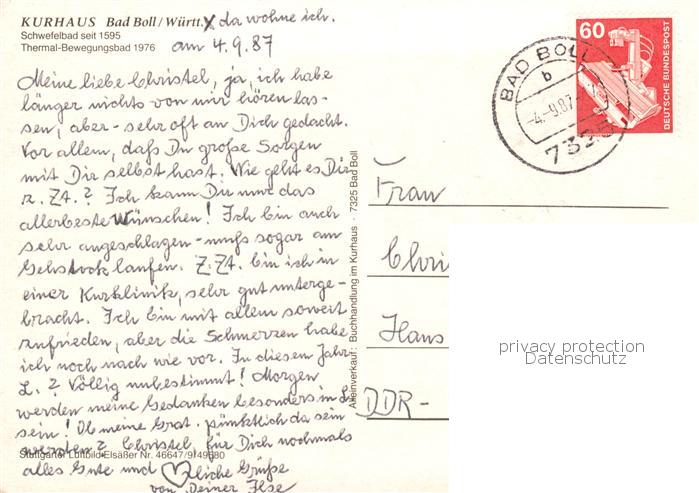 KURHAUS Bad Boll / Württ. X da wohne ich.
Schwefelbad seit 1595
Thermal-Bewegungsbad 1976
am 4.9.87
Meine liebe Christel, ja, ich habe
länger nichts von mir hören las-
sen, aber - sehr oft an Dich gedacht.
Vor allem, daß Du große Sorgen
mit Dir selbst hast. Wie geht es Dir
z. Zt.? Ich kann Dir nur das
allerbeste Wünschen! Ich bin auch
sehr angeschlagen - muß sogar am
Gehstock laufen. Z. Zt. bin ich in
einer Kurklinik, sehr gut unterge-
bracht. Ich bin mit allem soweit
zufrieden, aber die Schmerzen habe
ich noch nach wie vor. In diesem Jahr
L.? Völlig unbestimmt! Morgen
werden meine Gedanken besonders in L.
sein! Ob meine Grat. pünktlich da sein
werden? Christel, für Dich nochmals
Stuttgarter Luftbild Elsäßer Nr. 46647/9/49580
alles Gute und ♡liche Grüße
von Deiner Ilse
Alleinverkauf: Buchhandlung im Kurhaus · 7325 Bad Boll
60
DEUTSCHE BUNDESPOST
BAD BOLL
b
-4.-9.87
7325
Frau
Chri
Hans
DDR-
privacy protection
Datenschutz